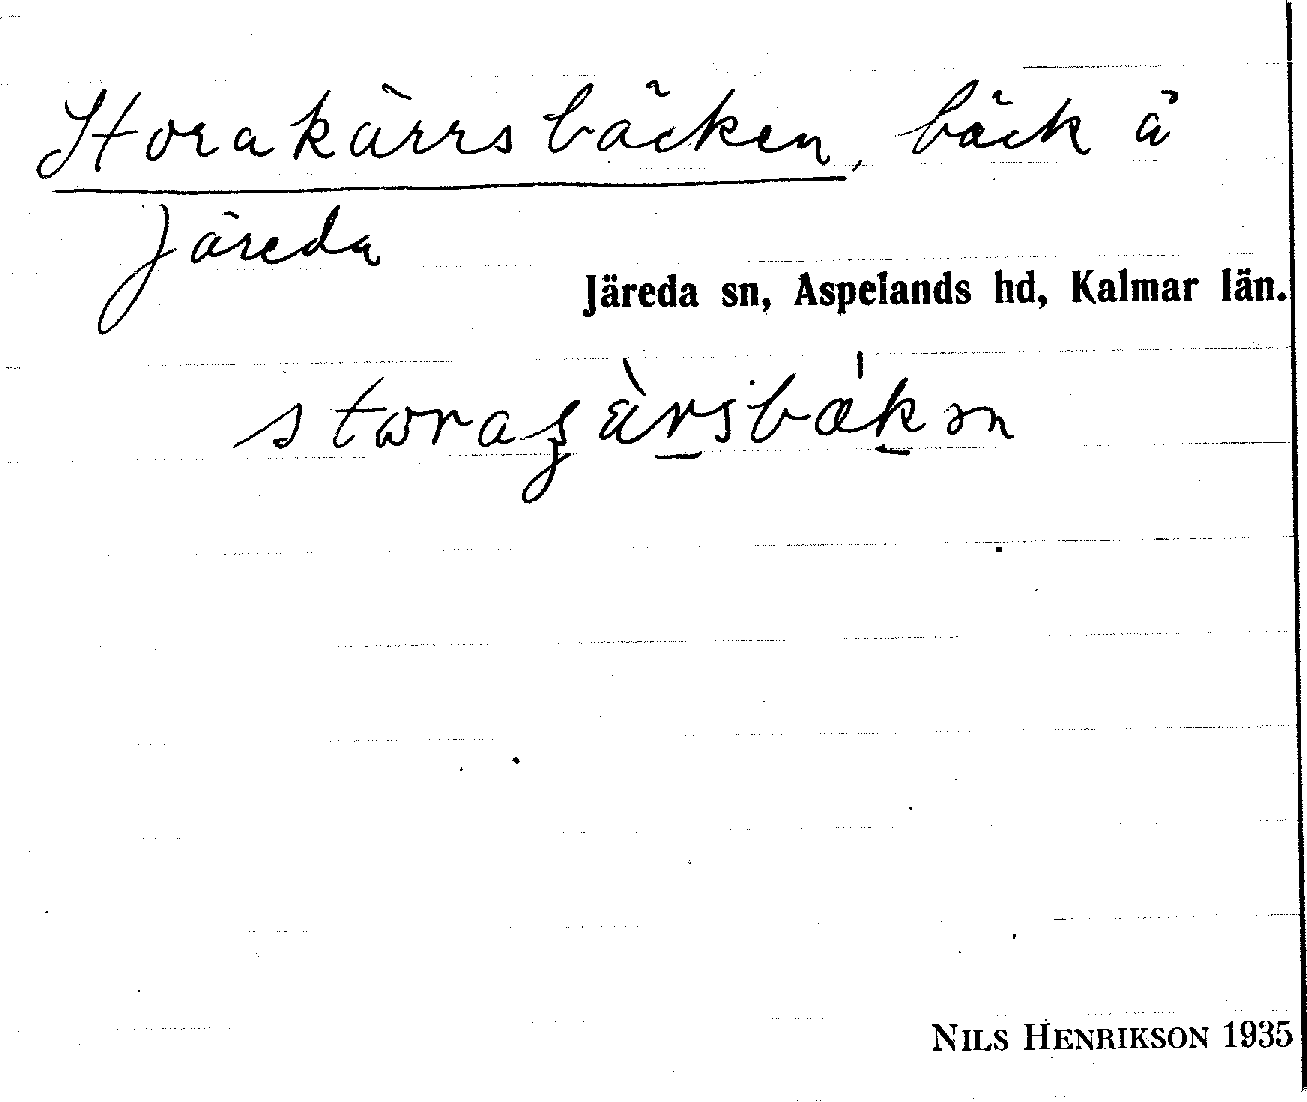 Storakärrsbäcken, bäck å
Järeda
Järeda sn, Aspelands hd, Kalmar län.
NILS HENRIKSON 1935